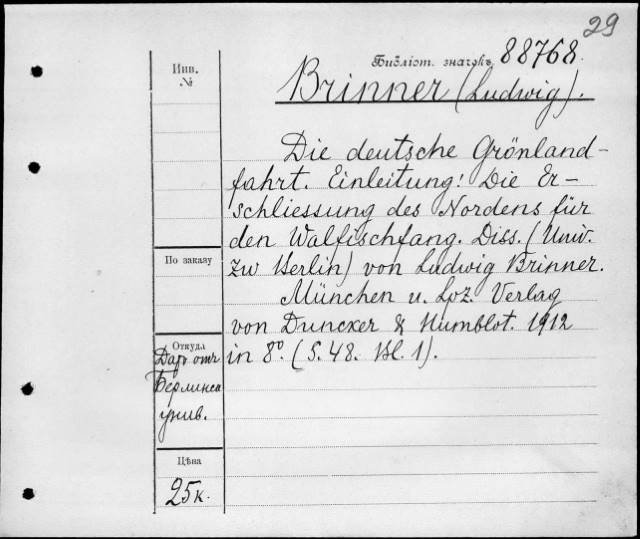 29
Библіот. значекъ 88768
Инв.
№
Brinner (Ludwig).
Die deutsche Grönland-
fahrt. Einleitung: Die Er-
schliessung des Nordens für
den Walfischfang. Diss. (Univ.
По заказу
zu Berlin) von Ludwig Brinner.
München u. Lpz. Verlag
von Duncker & Humblot. 1912
Откуда
in 8º. (S. 48. Bl. 1).
Даръ отъ
Берлинск
унив.
Цѣна
25 к.